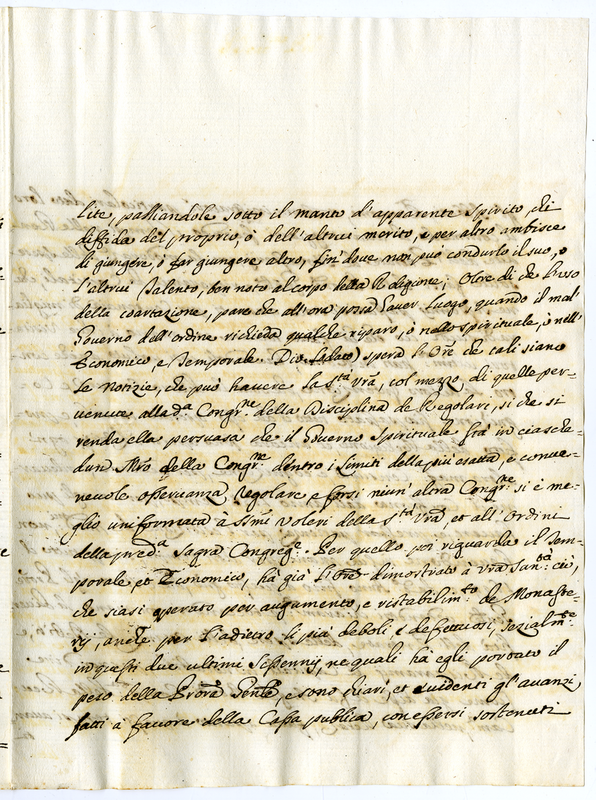 lite, palliandole sotto il manto d'apparente spirito, chi
diffida del proprio, ò dell'altrui merito, e per altro ambisce
di giungere, ò far giungere altro, fin' dove non può condurlo il suo, o
l'altrui Talento, ben noto al corpo della Religione; Oltre di che l'uso
della coartazione, pare che all'ora possa haver luogo, quando il mal'
Governo dell'ordine richieda qualche riparo, ò nello spirituale, ò nell'
Economico, e Temporale. Dio lodato spera l'Ore che tali siano
le notizie, che può havere la Stà Vrã, col mezzo, di quelle per=
venute alla da. Congrne. della Disciplina de Regolari, si che si
renda ella persuasa che il Governo spirituale stà in ciasche=
dun Mro della Congrne dentro i limiti della più esatta, e conve=
nevole osservanza regolare, e forsi niun' altra Congrne. si è me=
glio uniformata à Smi Voleri della Stà Vrã, et all'Ordini
della preda. Sagra Congrege. Per quello poi riguarda il Tem=
porale et Economico, hà già l'Ore dimostrato à Vrã Santà. ciò,
che siasi operato per augumento, e ristabilimto de Monaste=
rij, anche per l'adietro li più deboli e defettuosi, spezialmte.
in questi due ultimi Sessennij, ne quali hà egli portato il
peso della Prorã Gentle, e sono chiari, et evidenti gl'avanzi
fatti à favore della Cassa publica, con essersi sostenuti